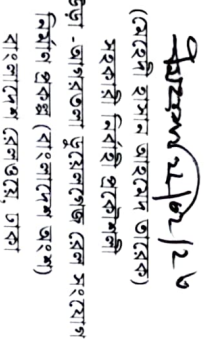 (মেহেদি হাসান আহমেদ তারেক)
সহকারি নির্বাহী প্রকৌশলী
-আগরতলা ডুয়েলগেজ রেল সংযোগ
নির্মাণ প্রকল্প (বাংলাদেশ অংশ)
বাংলাদেশ রেলওয়ে, ঢাকা